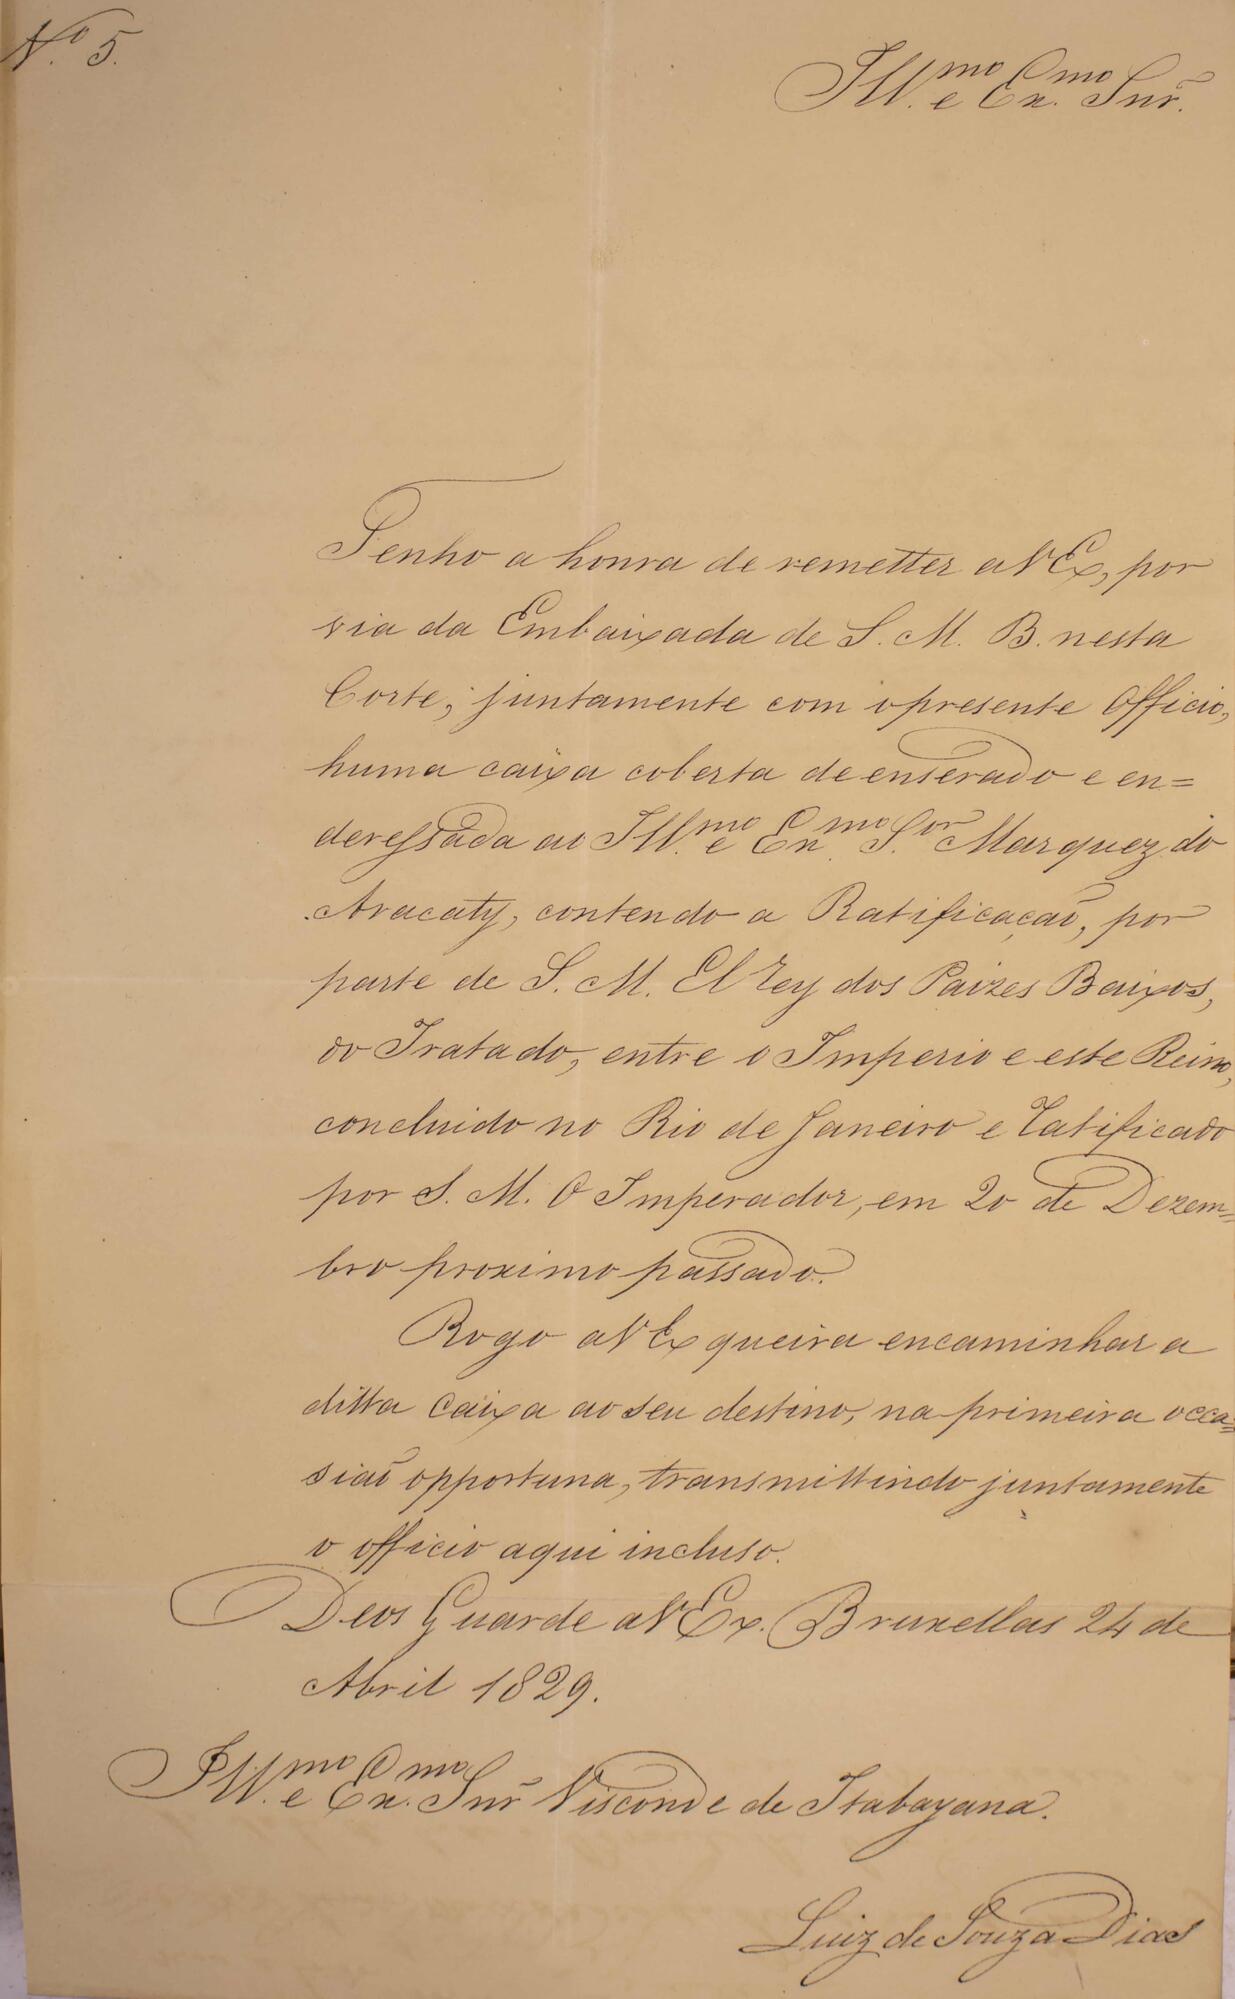 Nº 5.
Illmo. e Exmo. Snr.
Tenho a honra de remetter a V Ex, por
via da Embaixada de S. M. B. nesta
Corte, juntamente com o presente Officio,
huma caixa coberta de enserado e en=
deressada ao Illmo. e Exmo. Sor. Marquez do
Aracaty, contendo a Ratificaçaõ, por
parte de S. M. El rey dos Paizes Baixos,
do Tratado, entre o Imperio e este Reino,
concluido no Rio de Janeiro e ratificado
por S. M. O Imperador, em 20 de Dezem=
bro proximo passado.
Rogo a V Ex queira encaminhar a
ditta caixa ao seu destino, na primeira occa=
siaõ opportuna, transmittindo juntamente
o officio aqui incluso.
Deos Guarde a V Ex. Bruxellas 24 de
Abril 1829.
Illmo. e Exmo. Snr Visconde de Itabayana.
Luiz de Souza Dias